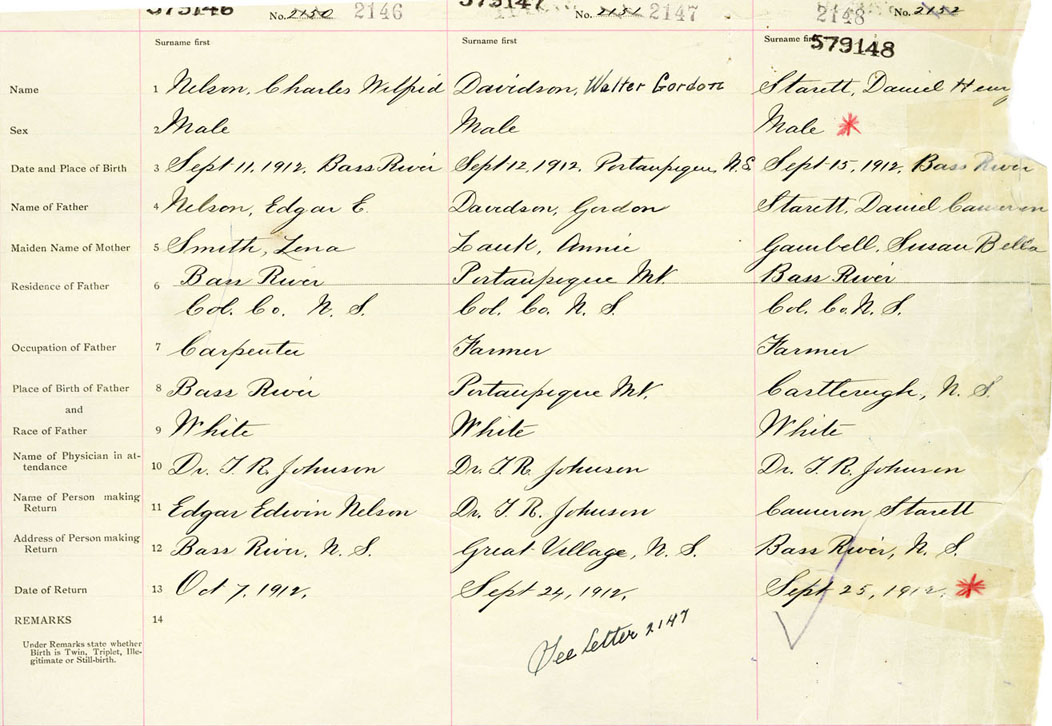 579146 No. 2150 2146 579147 No. 2151 2147 2148 No. 2152
Surname first Surname first Surname first 579148
Name 1 Nelson, Charles Wilfrid Davidson, Walter Gordon Starett, Daniel Henry
Sex 2 Male Male Male
Date and Place of Birth 3 Sept 11, 1912, Bass River Sept 12, 1912, Portaupique, N.S Sept 15, 1912, Bass River
Name of Father 4 Nelson, Edgar E. Davidson, Gordon Starett, Daniel Cameron
Maiden Name of Mother 5 Smith, Lena Lauk, Annie Gambell, Susan Bella
Residence of Father 6 Bass River Portaupique Mt. Bass River
Col. Co. N. S. Col. Co. N. S. Col. Co. N. S.
Occupation of Father 7 Carpenter Farmer Farmer
Place of Birth of Father 8 Bass River Portaupique Mt. Castlereigh, N. S.
and
Race of Father 9 White White White
Name of Physician in at-
tendance 10 Dr. T. R. Johnson Dr. T. R. Johnson Dr. T. R. Johnson
Name of Person making
Return 11 Edgar Edwin Nelson Dr. T. R. Johnson Cameron Starett
Address of Person making
Return 12 Bass River, N. S. Great Village, N. S. Bass River, N. S.
Date of Return 13 Oct 7, 1912, Sept 24, 1912, Sept 25, 1912.
REMARKS 14
Under Remarks state whether
Birth is Twin, Triplet, Ille-
gitimate or Still-birth.
See Letter 2147